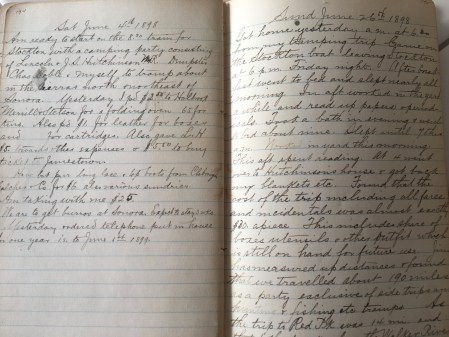 Sat June 4th 1898
Am ready to start on the 8.00 train for
Stockton with a camping party consisting
of Lincoln & J.S. Hutchinson Mr. Dempster
Chas Noble & myself, to tramp about
in the sierras north northeast of
Sonora. Yesterday I pd
for a folding oven
tires. Also pd for leather for box for
and for cartridges. Also gave L.H.
15. towards the expenses & 5.50 to buy
ticket to Jamestown.
Have bot pr long lace up boots from
for $6 also various sundries
Am taking with me $25.
Mean to get burros at Sonora. Expect to stay 3 wks
Yesterday ordered telephone put in house
in one year in to June 1st 1899.
Sund June 26th 1898
Got home yesterday a.m. at 6
from my camping trip. Came on
the Stockton boat leaving Stockton
at 6 p.m. Friday night. After break-
fast went to bed and slept nearly all
morning. In aft worked in the yard
a while and read up papers & period-
icals. Took a bath in evening & went
to bed about nine. Slept until 9 this
a.m. Worked in yard this morning
This aft spent reading. At 4 went
over to Hutchinsons house & got back
my blankets etc. Found that the
cost of the trip including all fares
and incidentals was almost exactly
$20. apiece. This includes share of
boxes utensils & other outfit which
is still on hand for future use
has measured up distances & found
that we travelled about 190 miles
as a party exclusive of side trips on
& fishing etc tramps. As
the trip to Red Pk was 14 mi. and